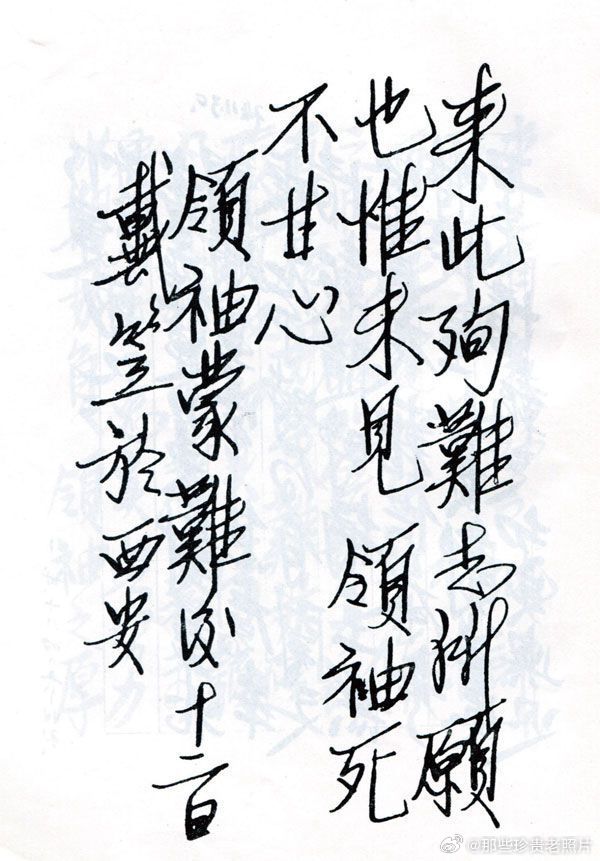 来此殉難志所願
也惟未見 領袖死
不甘心
領袖蒙難後十二日
戴笠於西安
@那些珍贵老照片